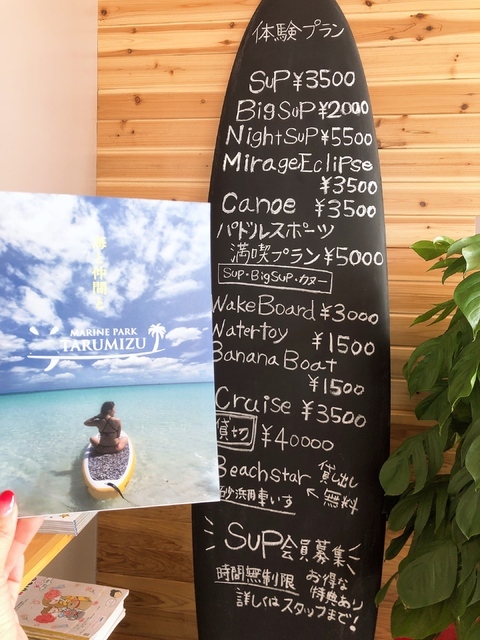 体験プラン
SUP ¥3500
BigSUP ¥2000
NightSUP ¥5500
MirageEclipse
¥3500
Canoe ¥3500
パドルスポーツ
満喫プラン ¥5000
SUP・BigSUP・カヌー
WakeBoard ¥3000
Watertoy ¥1500
BananaBoat
¥1500
Cruise ¥3500
貸切 ¥40000
Beachstar 貸し出し
砂浜用車いす ← 無料
SUP会員募集
時間無制限 お得な
特典あり
詳しくはスタッフまで!
MARINE PARK
TARUMIZU